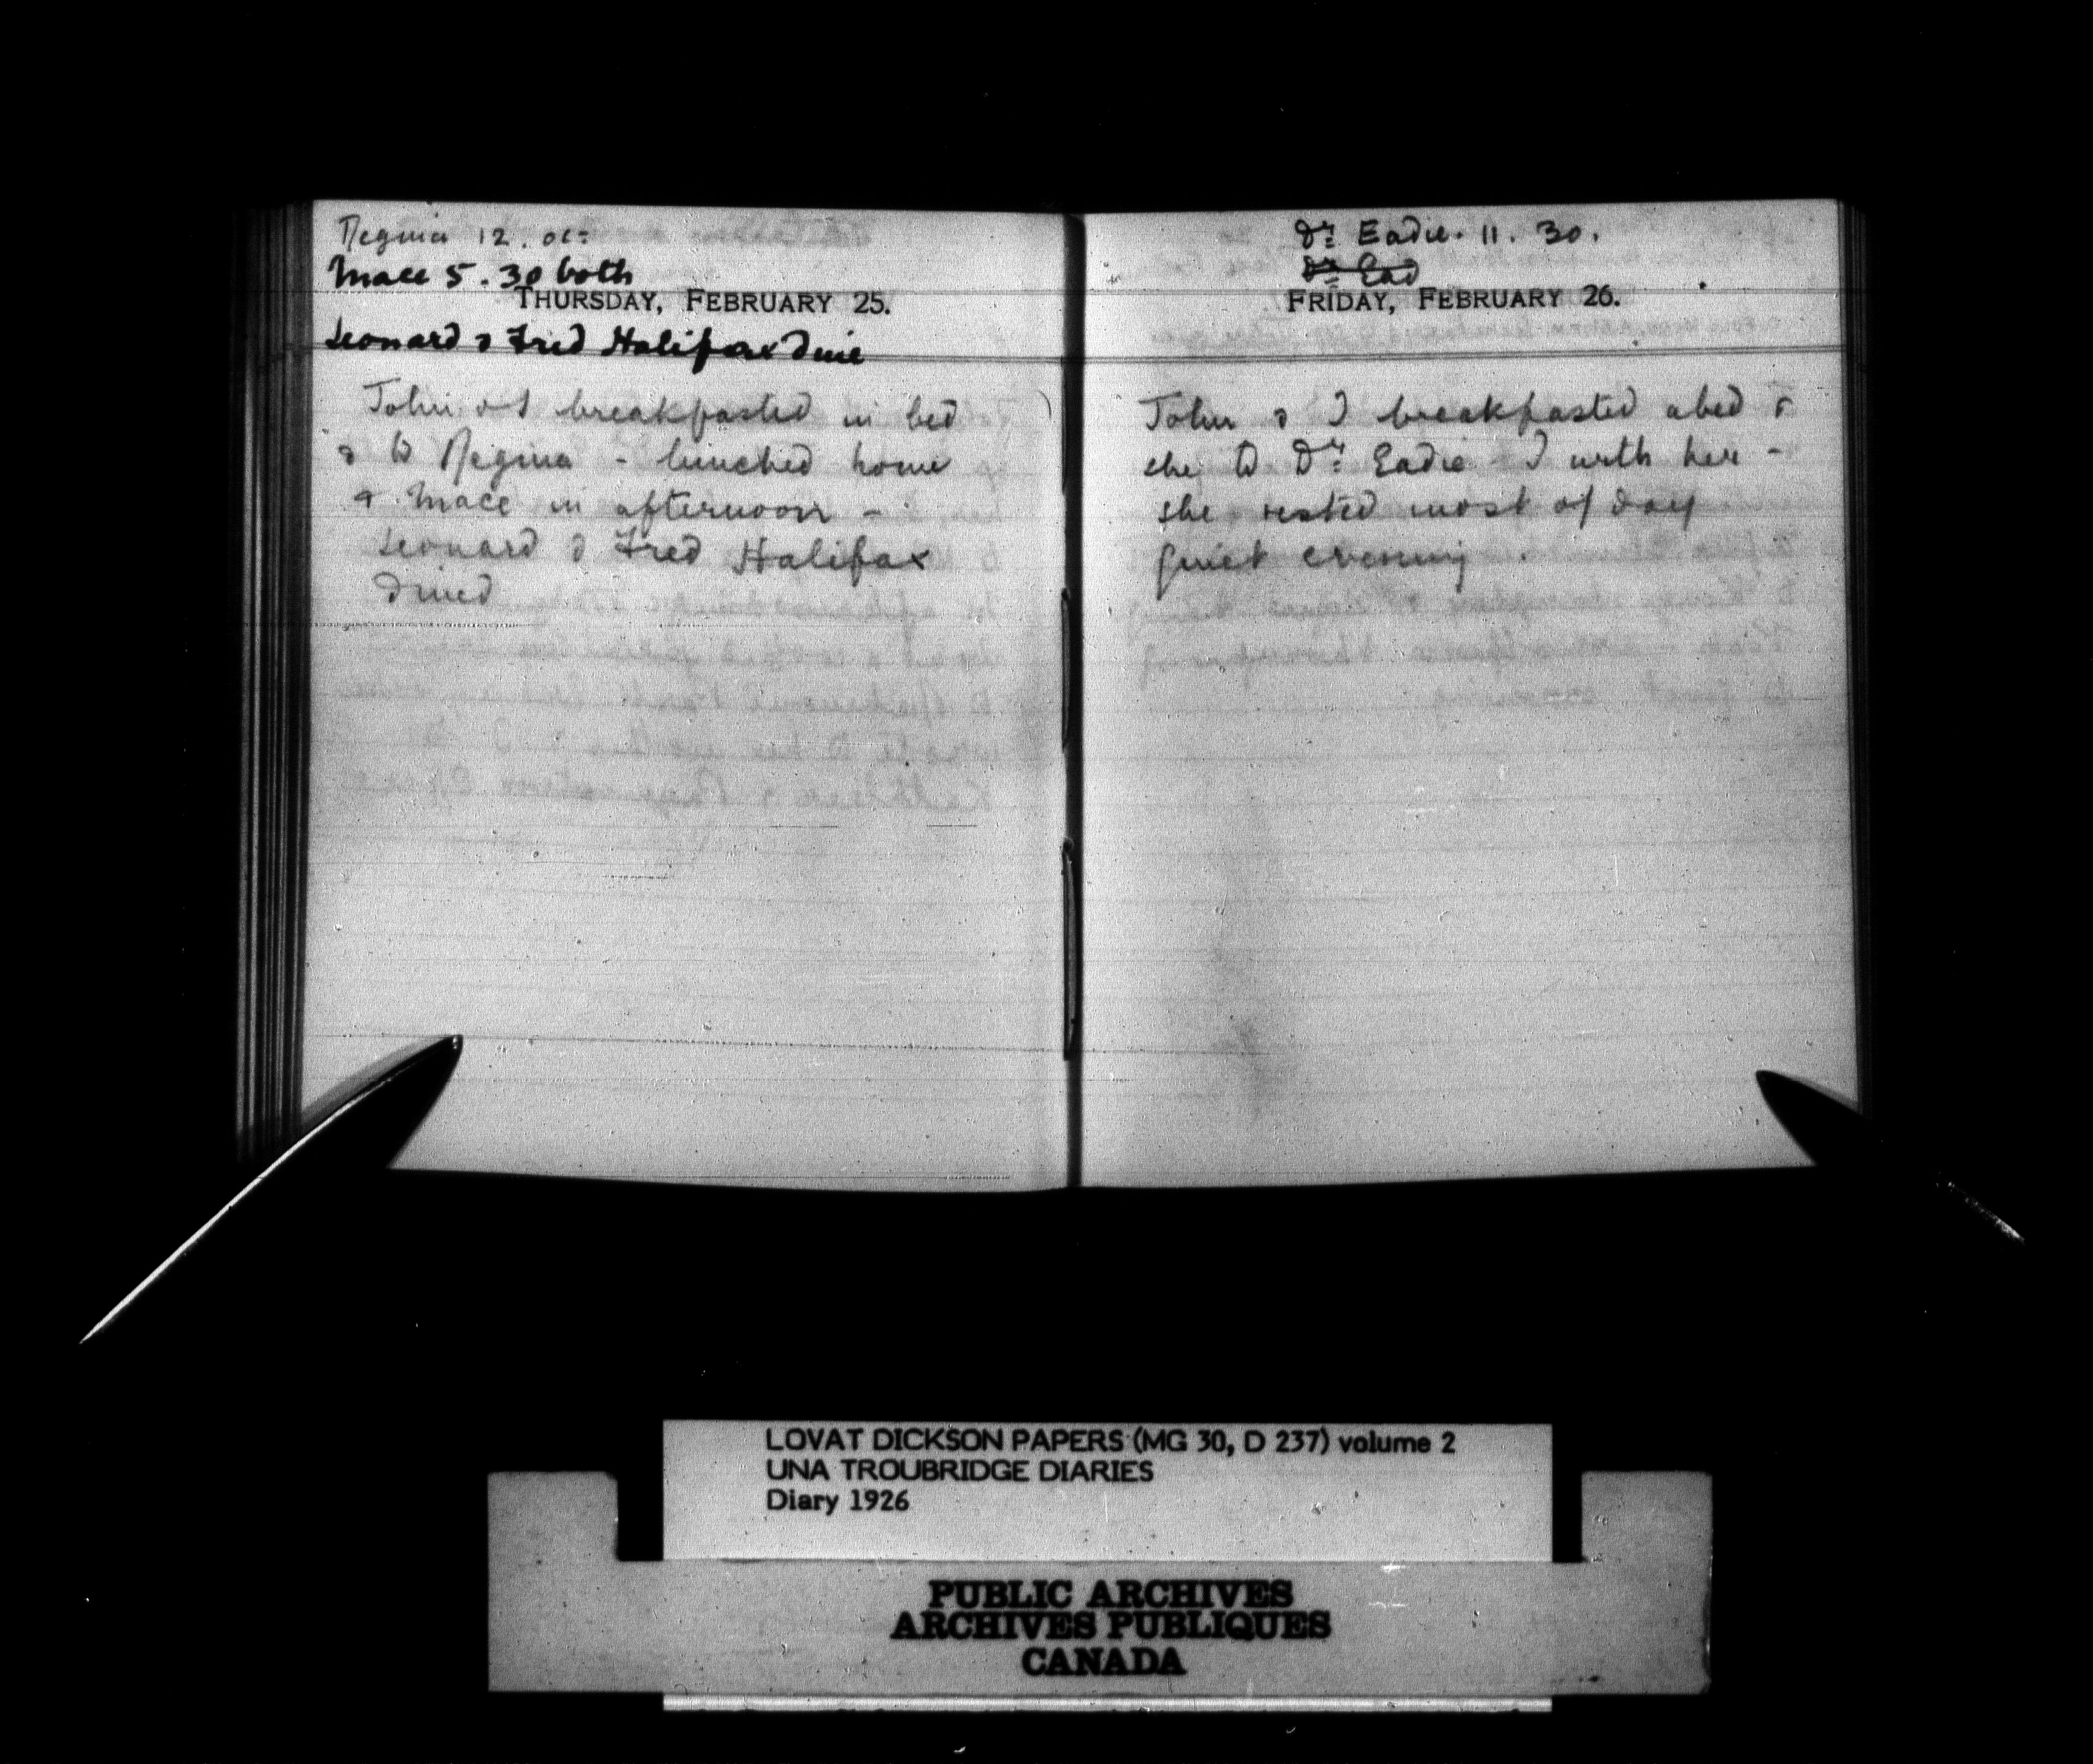 Regina 12. oc=
Mace 5.30 both
THURSDAY, FEBRUARY 25.
Leonard & Fred Halifax dine
John & I breakfasted in bed
& to Regina - lunched home
& Mace in afternoon -
Leonard & Fred Halifax
dined
Dr: Eadie. 11. 30.
Dr: Ead
FRIDAY, FEBRUARY 26.
John & I breakfasted abed &
she to Dr: Eadie I with her -
she rested most of day
quiet evening.
LOVAT DICKSON PAPERS (MG 30, D 237) volume 2
UNA TROUBRIDGE DIARIES
Diary 1926
PUBLIC ARCHIVES
ARCHIVES PUBLIQUES
CANADA